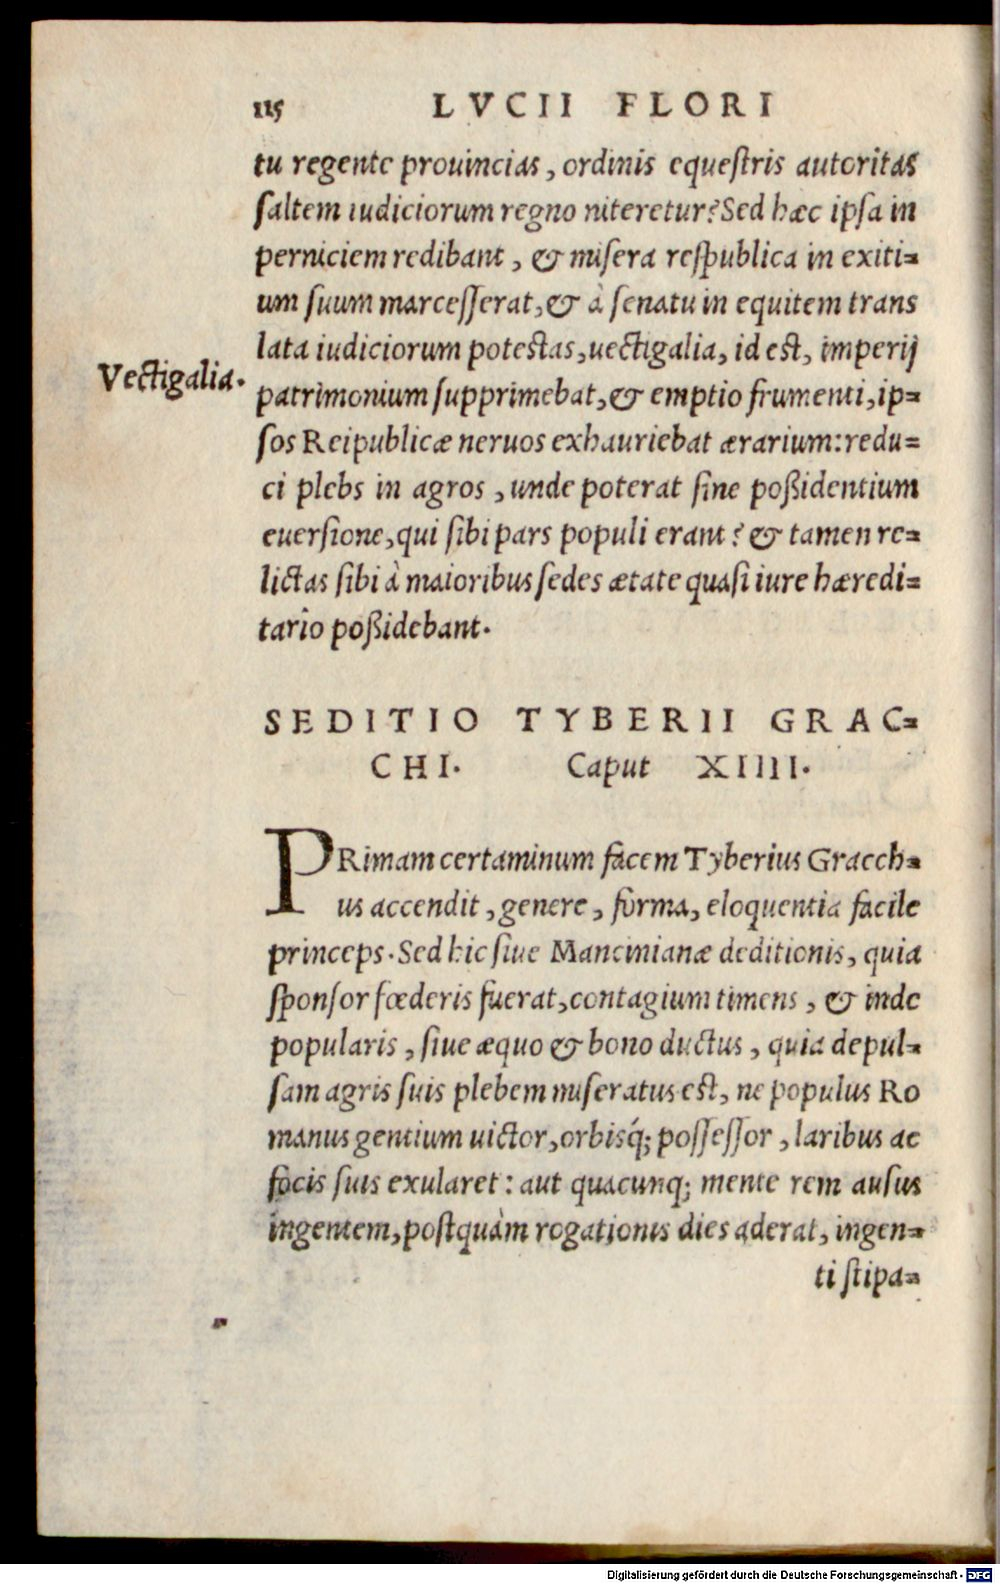 115 LVCII FLORI
tu regente prouincias, ordinis equeſtris autoritas
ſaltem iudiciorum regno niteretur? Sed hæc ipſa in
perniciem redibant, & miſera reſpublica in exiti=
um ſuum marceſſerat, & à ſenatu in equitem trans
lata iudiciorum poteſtas, uectigalia, id eſt, imperij
Vectigalia.
patrimonium ſupprimebat, & emptio frumenti, ip=
ſos Reipublicæ neruos exhauriebat ærarium: redu=
ci plebs in agros, unde poterat ſine poßidentium
euerſione, qui ſibi pars populi erant? & tamen re=
lictas ſibi à maioribus ſedes ætate quaſi iure hæredi=
tario poßidebant.
SEDITIO TYBERII GRAC=
CHI. Caput XIIII.
PRimam certaminum facem Tyberius Gracch=
us accendit, genere, forma, eloquentia facile
princeps. Sed hic ſiue Mancinianæ deditionis, quia
ſponſor fœderis fuerat, contagium timens, & inde
popularis, ſiue æquo & bono ductus, quia depul=
ſam agris ſuis plebem miſeratus eſt, ne populus Ro
manus gentium uictor, orbisq́; poſſeſſor, laribus ac
focis ſuis exularet: aut quacunq; mente rem auſus
ingentem, poſtquàm rogationis dies aderat, ingen=
ti ſtipa=
Digitalisierung gefördert durch die Deutsche Forschungsgemeinschaft - DFG